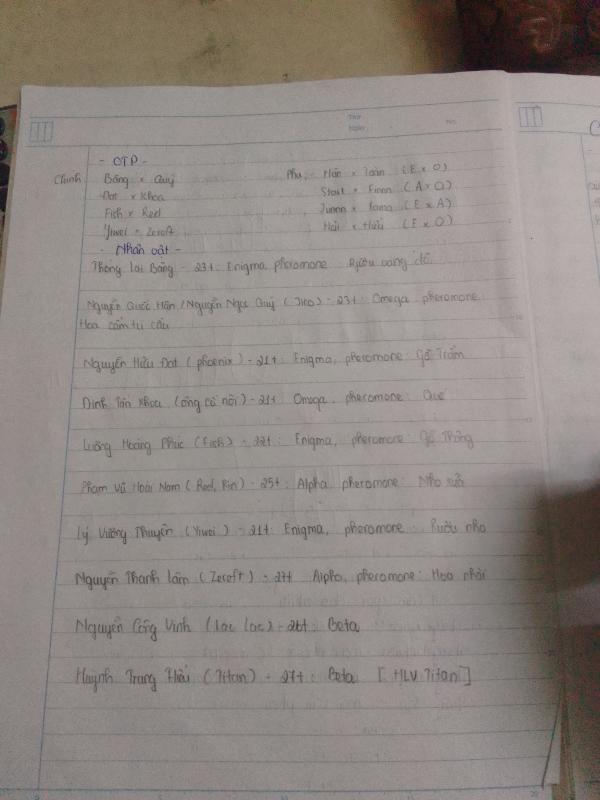 Thứ
Ngày
No.
- OTP -
Chính: Bâng x Quý Phụ: Hân x Toàn (E x O)
Đạt x Khoa Start x Finnn (A x O)
Fish x Red Junnn x Yamu (E x A)
Yiwei x Zeroft Hải x Hiếu (E x O)
- Nhân vật -
Thóng Lai Bâng - 23t: Enigma, pheromone: Rượu vang đỏ
Nguyễn Quốc Hận / Nguyễn Ngọc Quý (Jiro) - 23t: Omega, pheromone:
Hoa cẩm tú cầu
Nguyễn Hữu Đạt (phoenix) - 21t: Enigma, pheromone: Gỗ Trầm
Đinh Tấn Khoa (ông cố nội) - 21t: Omega, pheromone: Quế
Lương Hoàng Phúc (Fish) - 22t: Enigma, pheromone: Gỗ Thông
Phạm Vũ Hoài Nam (Red, Rin) - 25t: Alpha, pheromone: Nho sữa
Lý Vương Thuyên (Yiwei) - 21t: Enigma, pheromone: Rượu nho
Nguyễn Thanh Lâm (Zeroft) - 27t: Alpha, pheromone: Hoa nhài
Nguyễn Công Vinh (Lạc Lạc) - 26t: Beta
Huỳnh Trang Hiếu (Titan) - 27t: Beta [HLV Titan]